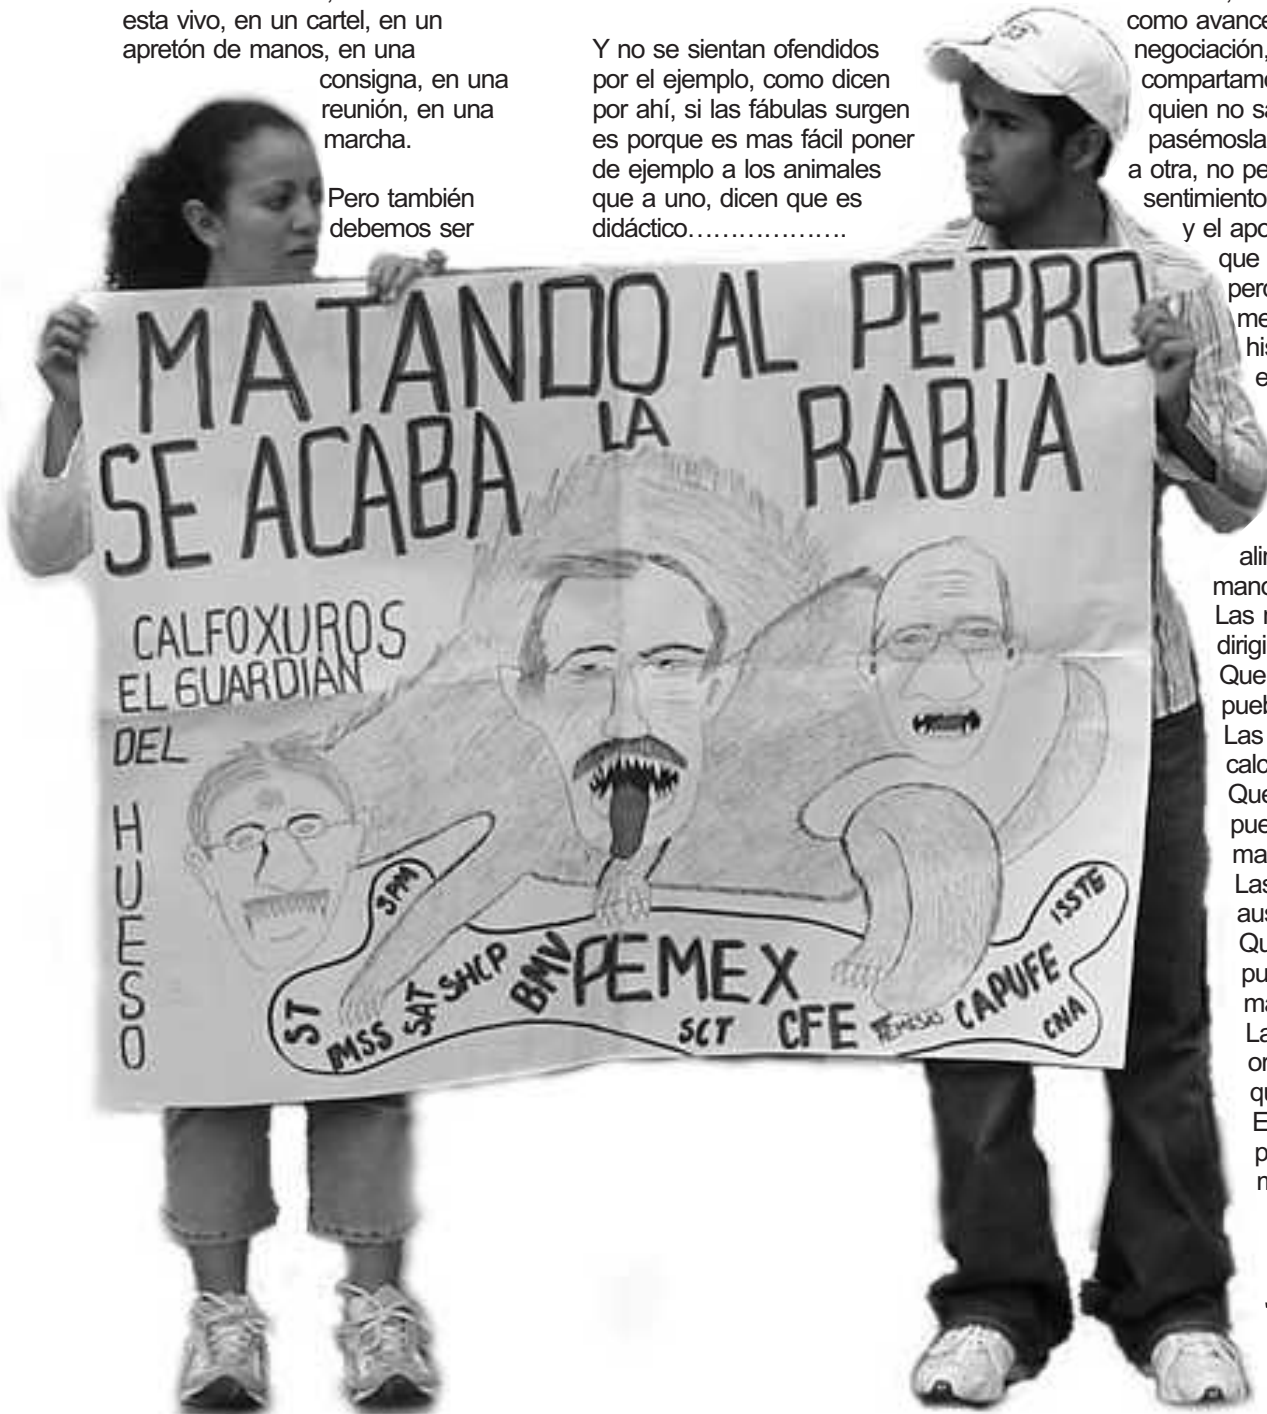 esta vivo, en un cartel, en un
apretón de manos, en una
consigna, en una
reunión, en una
marcha.
Pero también
debemos ser
Y no se sientan ofendidos
por el ejemplo, como dicen
por ahí, si las fábulas surgen
es porque es mas fácil poner
de ejemplo a los animales
que a uno, dicen que es
didáctico………………
como avance
negociación,
compartamo
quien no sa
pasémosla
a otra, no pe
sentimiento
y el apo
que
perc
me
his
e
alin
manc
Las r
dirigi
Que
pueb
Las
calc
Que
pue
ma
Las
aus
Qu
pu
ma
La
or
qu
E
p
n
MATANDO AL PERRO
SE ACABA LA RABIA
CALFOXUROS
EL GUARDIAN
DEL
HUESO
ST
IMSS
SAT
SHCP
BMV
PEMEX
SCT
CFE
CAPUFE
ISSTE
CNA